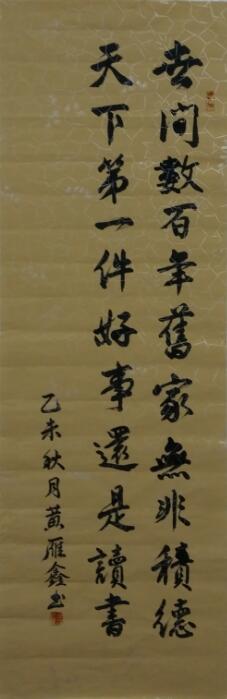 世間數百年舊家無非積德
天下第一件好事還是讀書
乙未秋月黃雁鑫书